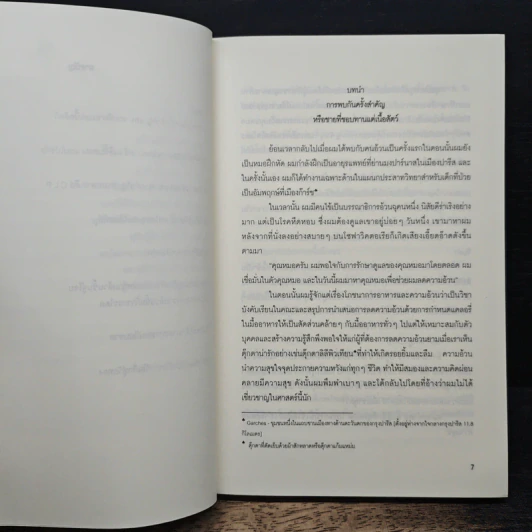 บทนำ
การพบกันครั้งสำคัญ
หรือชายที่ชอบทานแต่เนื้อสัตว์
ย้อนเวลากลับไปเมื่อผมได้พบกับคนอ้วนเป็นครั้งแรกในตอนนั้นผมยัง
เป็นหมอฝึกหัด ผมกำลังฝึกเป็นอายุรแพทย์ที่ย่านมงปาร์นาสในเมืองปารีส และ
ในครั้งนั้นเอง ผมก็ได้ทำงานเฉพาะด้านในแผนกประสาทวิทยาสำหรับเด็กที่ป่วย
เป็นอัมพฤกษ์ที่เมืองการ์ช
ในเวลานั้น ผมมีคนไข้เป็นบรรณาธิการอ้วนฉุคนหนึ่ง นิสัยดีร่าเริงอย่าง
มาก แต่เป็นโรคหืดหอบ ซึ่งผมต้องดูแลเขาอยู่บ่อยๆ วันหนึ่ง เขามาหาผม
หลังจากที่นั่งลงอย่างสบายๆ บนโซฟาวิคตอเรียก็เกิดเสียงเอี๊ยดอ๊าดดังขึ้น
ตามมา
"คุณหมอครับ ผมพอใจกับการรักษาดูแลของคุณหมอมาโดยตลอด ผม
เชื่อมั่นในตัวคุณหมอ และในวันนี้ผมมาหาคุณหมอเพื่อช่วยผมลดความอ้วน"
ในตอนนั้นผมรู้จักแต่เรื่องโภชนาการอาหารและความอ้วนว่าเป็นวิชา
บังคับเรียนในคณะและสรุปการนำเสนอการลดความอ้วนด้วยการกำหนดแคลอรี่
ในมื้ออาหารให้เป็นสัดส่วนคล้ายๆ กับมื้ออาหารทั่วๆ ไปแต่ให้เหมาะสมกับตัว
บุคคลและสร้างความรู้สึกพึงพอใจให้แก่ผู้ที่ต้องการลดความอ้วนยามเมื่อเราเห็น
ตุ๊กตาน่ารักอย่างเช่นตุ๊กตาลิลิพิวเทียน ที่ทำให้เกิดรอยยิ้มและลืม ความอ้วน
นำความสุขใจจุดประกายความหวังแก่ทุกๆ ชีวิต ทำให้มีสมองและความคิดผ่อน
คลายมีความสุข ดังนั้นผมพึมพำเบาๆ และได้กลับไปโดยที่อ้างว่าผมไม่ได้
เชี่ยวชาญในศาสตร์นี้นัก
Garches - ชุมชนหนึ่งในแถบชานเมืองทางด้านตะวันตกของกรุงปารีส [ตั้งอยู่ห่างจากใจกลางกรุงปารีส 11.8
กิโลเมตร]
ตุ๊กตาที่ตัดเย็บด้วยผ้าสักหลาดหรือตุ๊กตาแก้มแหม่ม
7